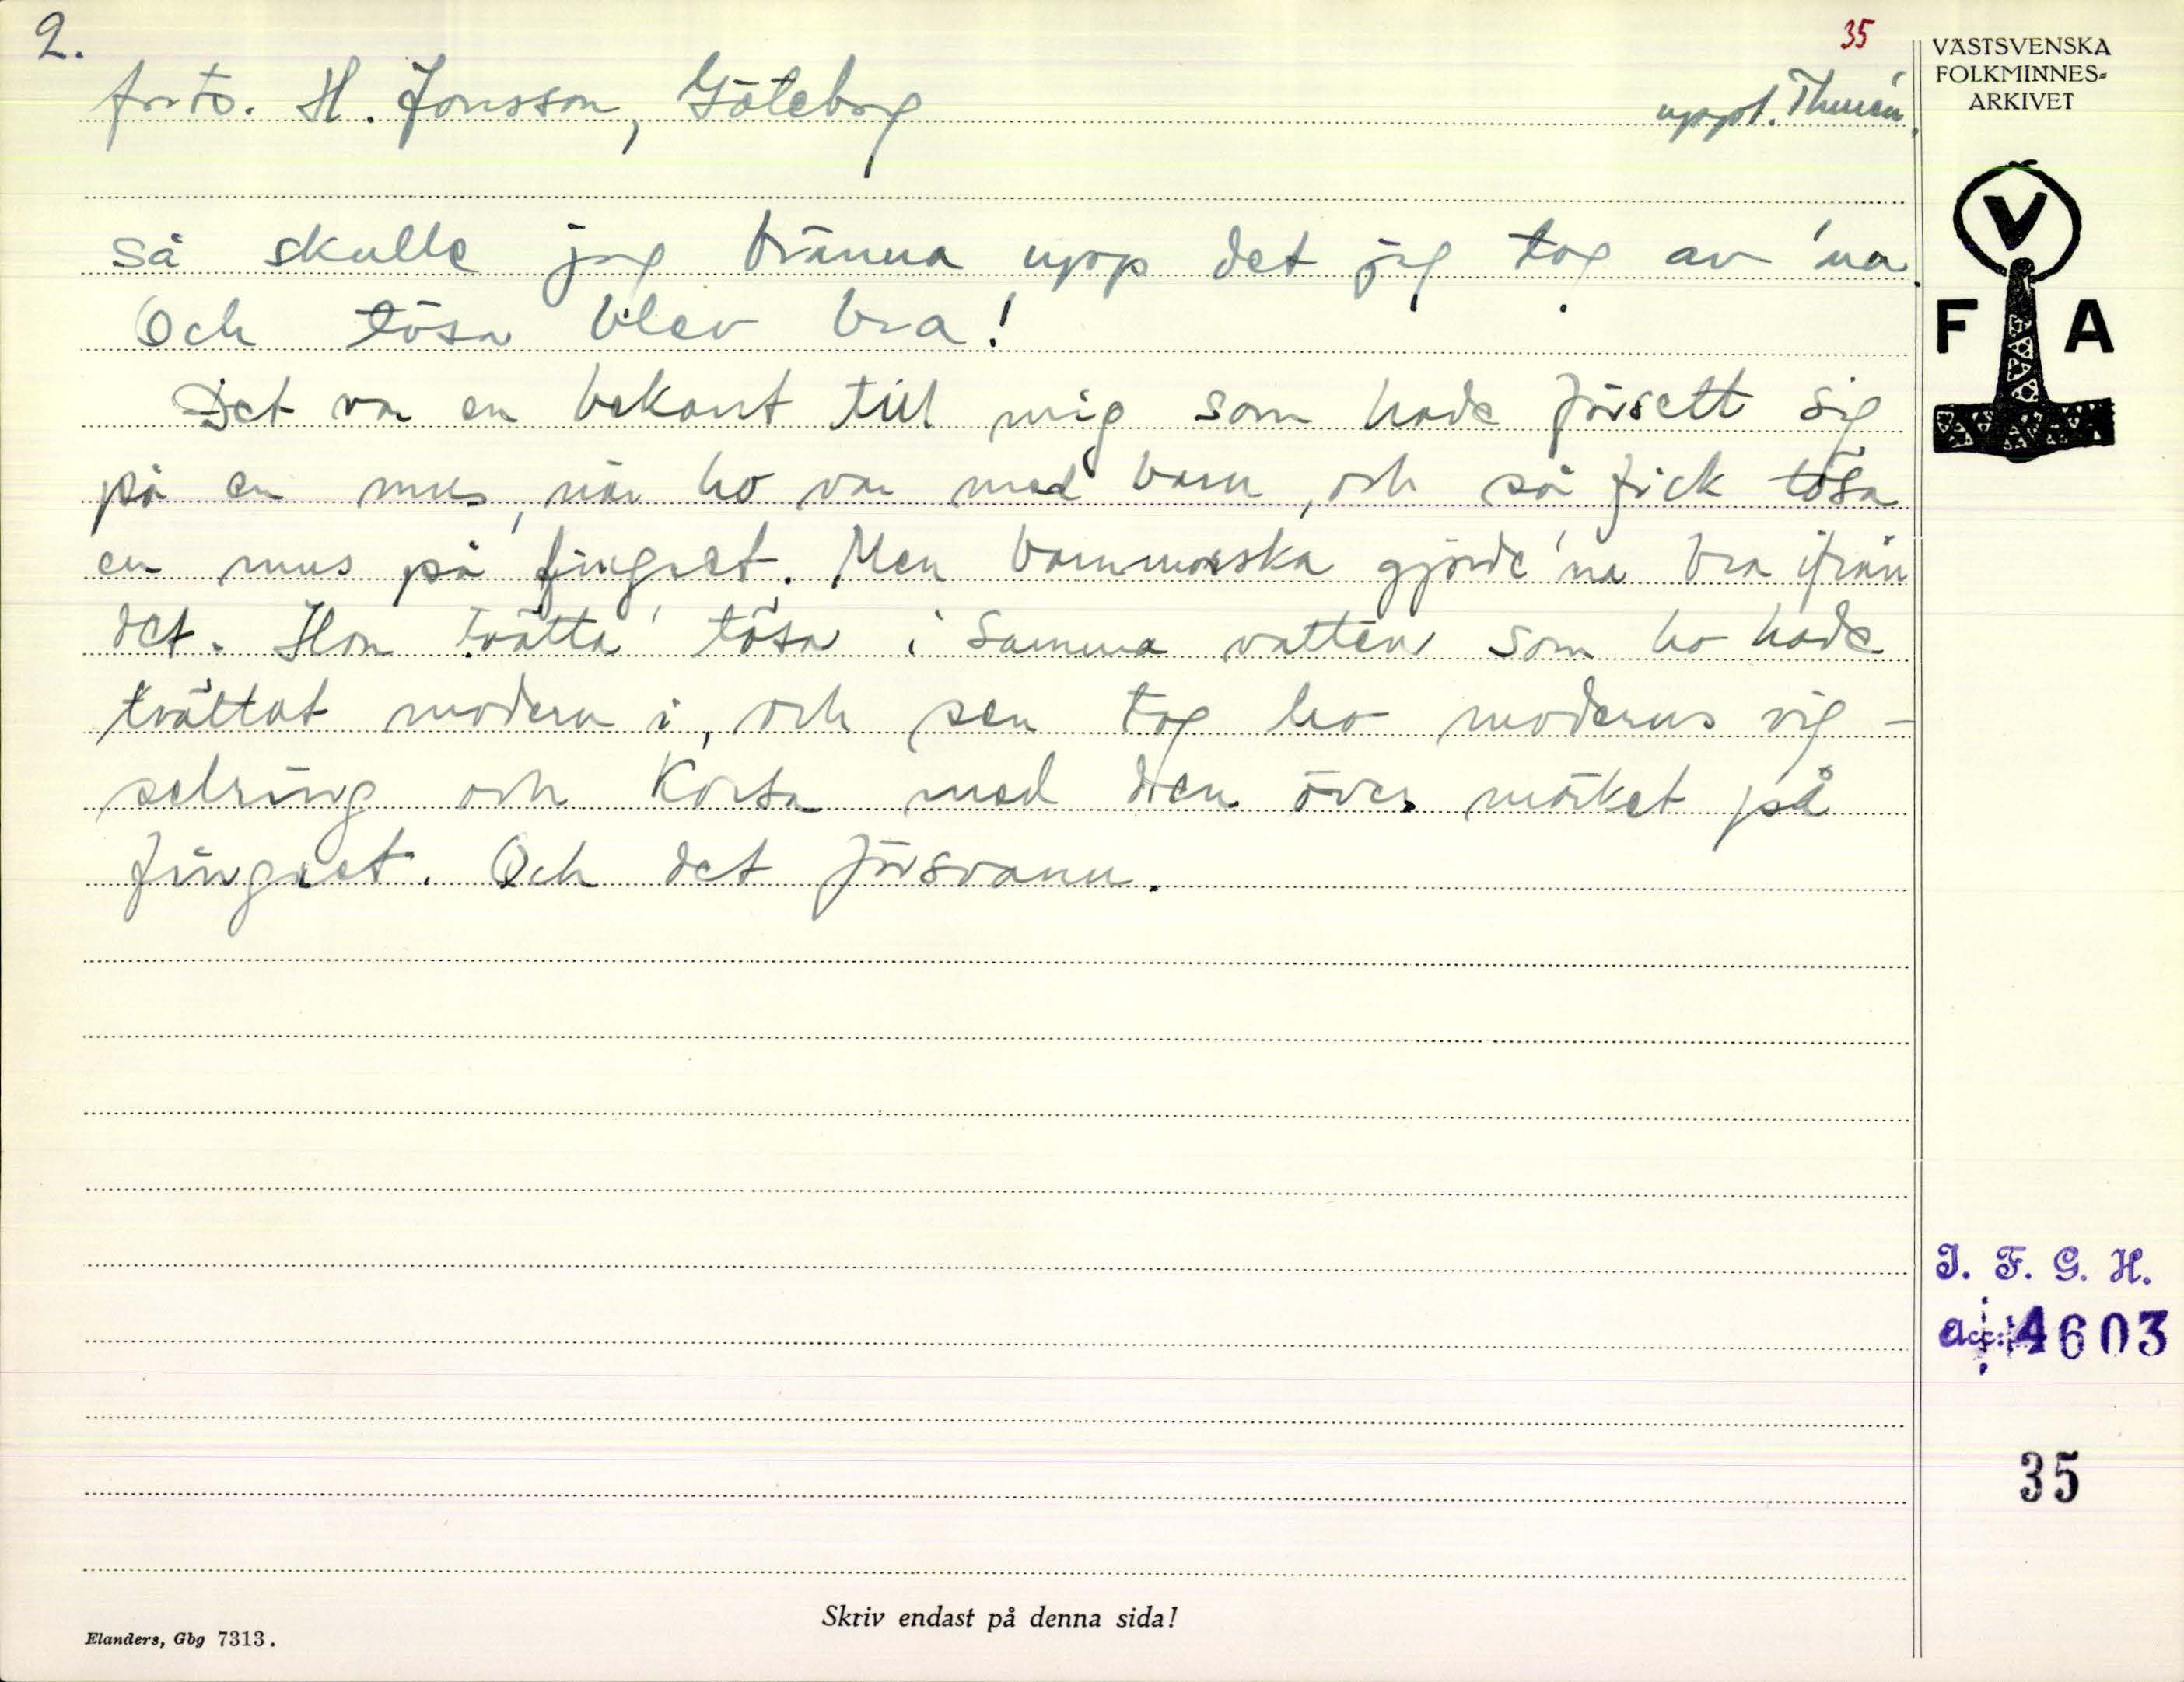 2.
35
forts. H. Jonsson, Göteborg
uppt. Thurén
så skulle jag bränna upp det jag tog av 'na.
Och tösa blev bra!
Det va en bekant till mig som hade försett sig
på en mus, när ho var med barn, och så fick tösa
en mus på fingret. Men barnmorska gjorde 'na bra ifrån
det. Hon tvätta' tösa i samma vatten som ho hade
tvättat modern i, och sen tog ho moderns vig-
selring och korsa med den över märket på
fingret. Och det försvann.
VÄSTSVENSKA
FOLKMINNES-
ARKIVET
V
F A
I. F. G. H.
acc: 4603
35
Skriv endast på denna sida!
Elanders, Gbg 7313.